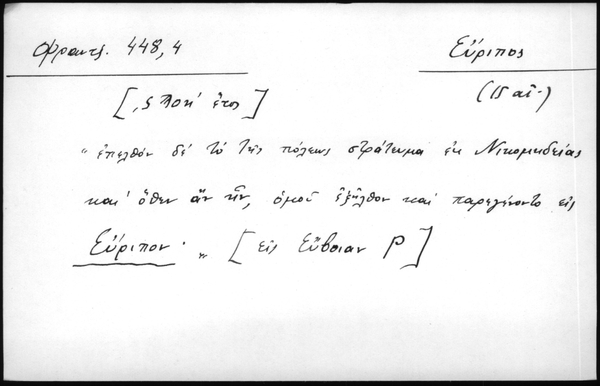 Φραντζ. 448,4
Εὔριπος
(15 αἰ.)
[,ς Ϡοη' ἔτος]
"ἐπελθόν δέ τό τῆς πόλεως στράτευμα ἐκ Νικομηδείας
καί ὅθεν ἄν ἦν, ὁμοῦ ἐξῆλθον καί παρεγένοντο εἰς
Εὔριπον. „ [εἰς Εὔβοιαν P]